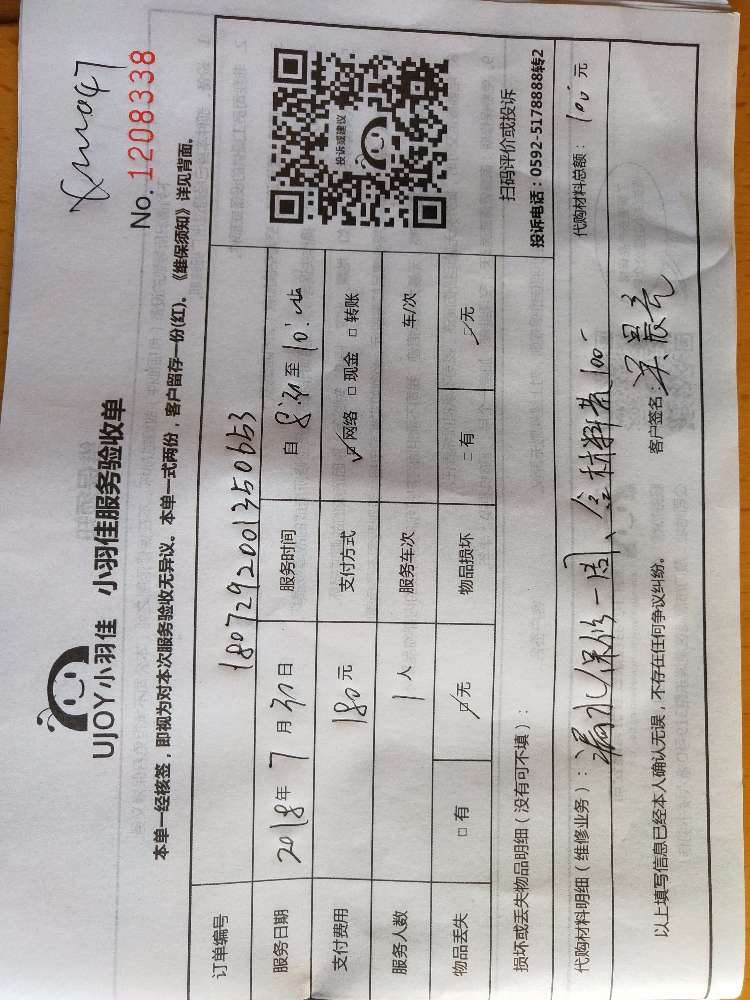 Xm1047
No. 1208338
UJOY小羽佳 小羽佳服务验收单
本单一经核签，即视为对本次服务验收无异议。本单一式两份，客户留存一份(红)。《维保须知》详见背面。
订单编号 1807292001350653
服务日期 2018年 7 月 31 日 服务时间 自 8:30 至 10:
支付费用 180 元 支付方式 ☑网络 □ 现金 □ 转账
服务人数 1 人 服务车次 车/次
物品丢失 □ 有 ☑无 物品损坏 □ 有 ☑无
投诉或建议
扫码评价或投诉
投诉电话：0592-5178888转2
损坏或丢失物品明细（没有可不填）：
代购材料明细（维修业务）：漏水保修一周、含材料费100- 代购材料总额：100 元
以上填写信息已经本人确认无误，不存在任何争议纠纷。 客户签名：